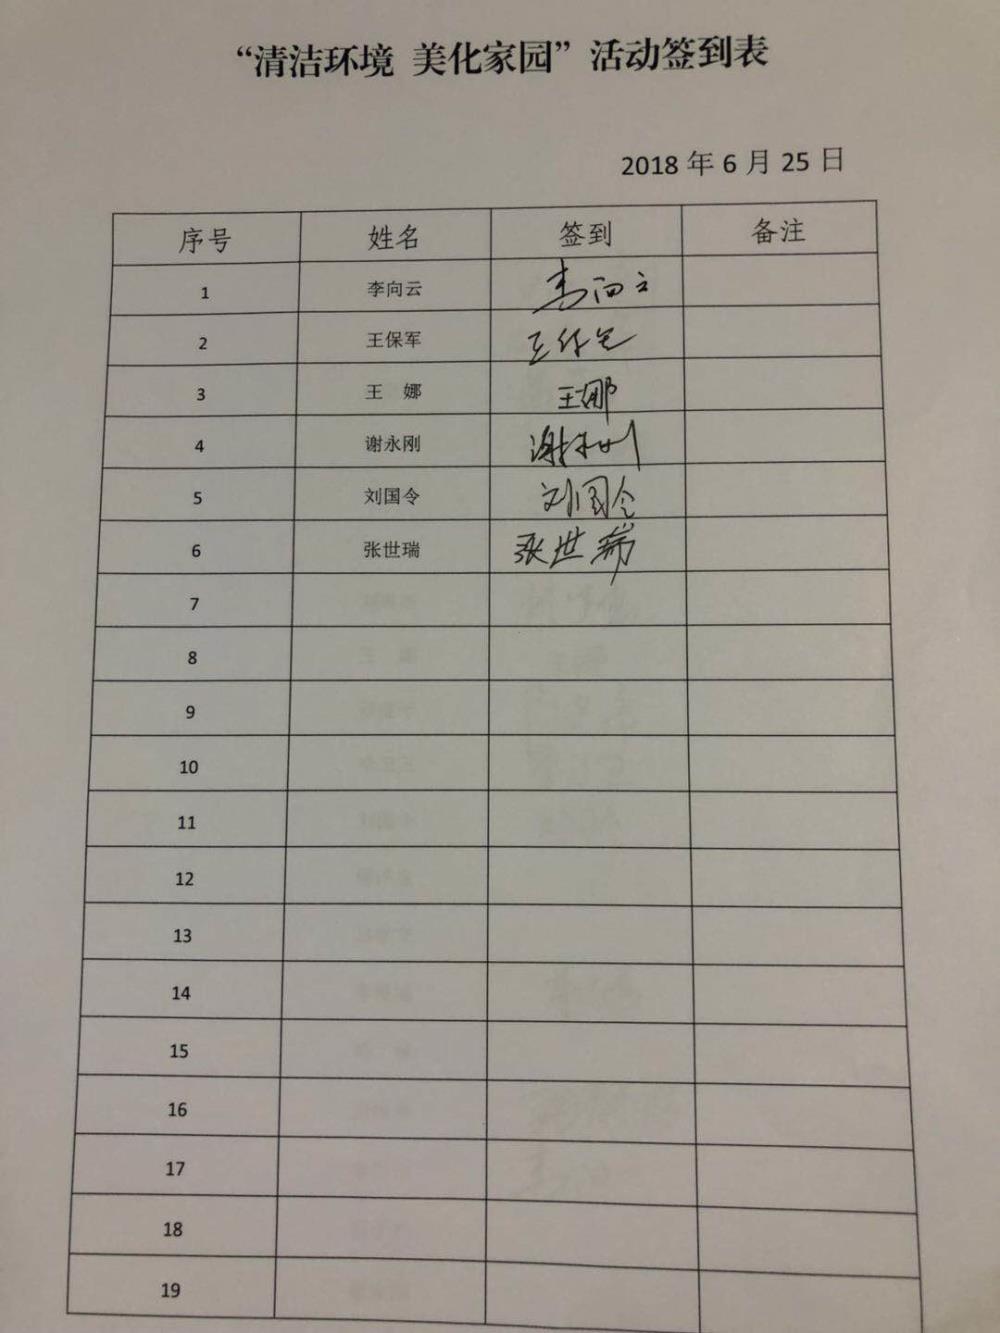 “清洁环境 美化家园”活动签到表
2018 年 6 月 25 日
序号 姓名 签到 备注
1 李向云 李向云
2 王保军 王保军
3 王 娜 王娜
4 谢永刚 谢永刚
5 刘国令 刘国令
6 张世瑞 张世瑞
7
8
9
10
11
12
13
14
15
16
17
18
19